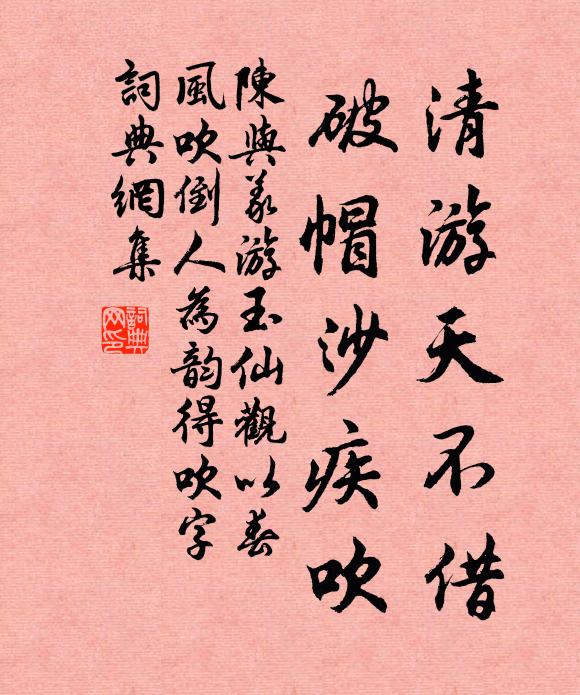 清游天不借
破帽沙疾吹
陳與義游玉仙觀以春
風吹倒人為韵得吹字
詞典網集
詞典
网印